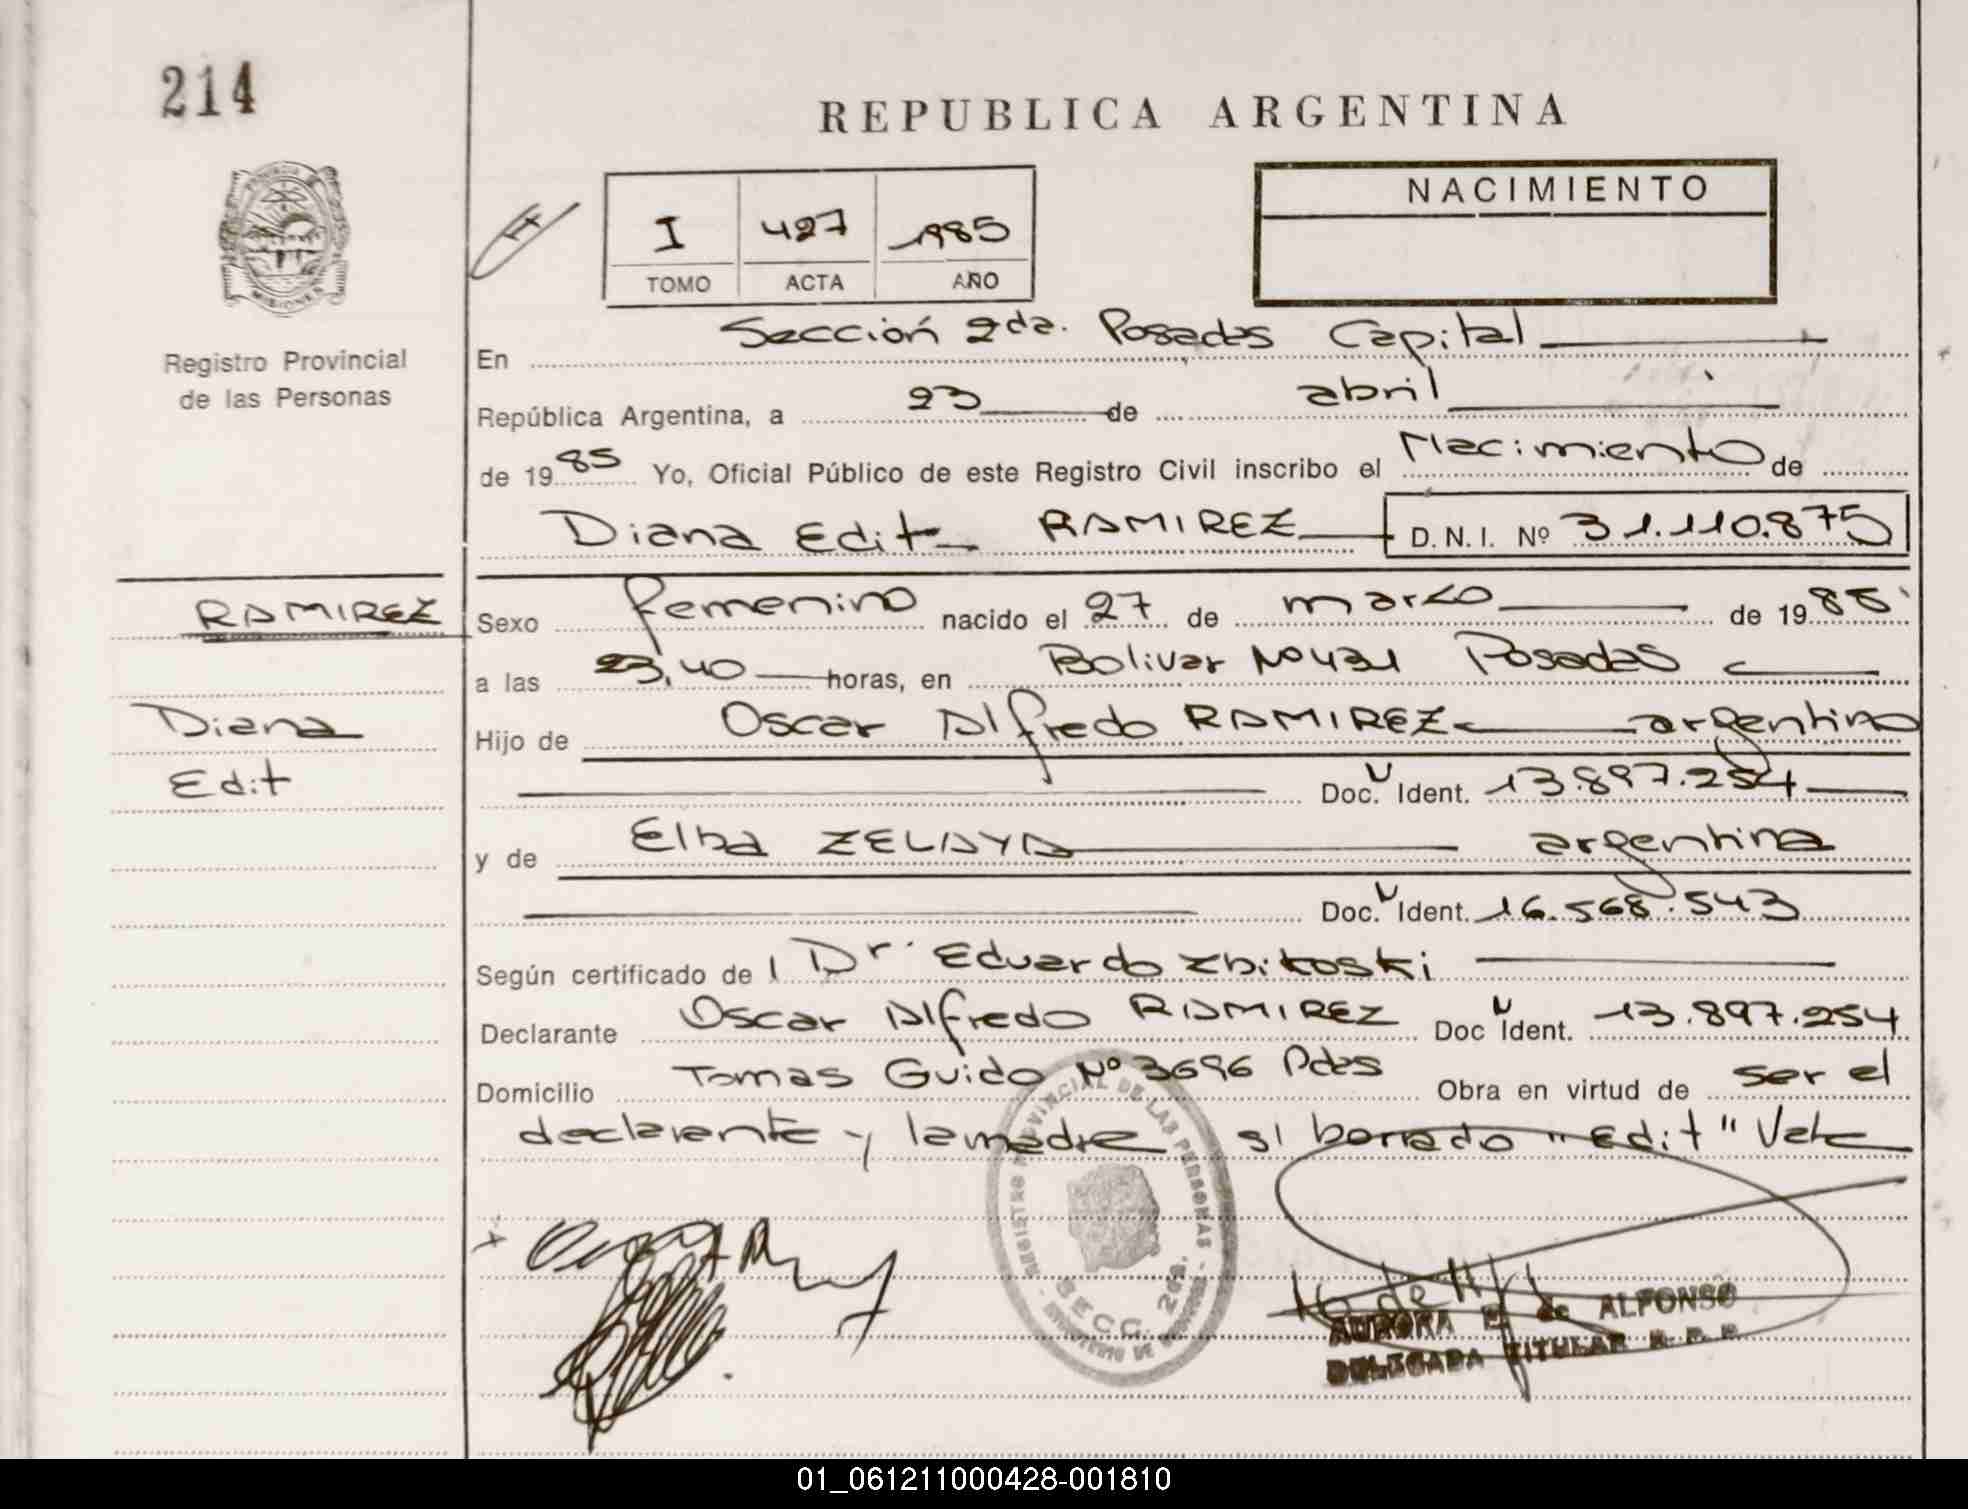 214
REPUBLICA ARGENTINA
I 427 1985
TOMO ACTA AÑO
NACIMIENTO
MISIONES
Registro Provincial
de las Personas
En Sección 2da. Posadas Capital
República Argentina, a 23 de abril
de 1985 Yo, Oficial Público de este Registro Civil inscribo el Nacimiento de
Diana Edit RAMIREZ D.N.I. Nº 31.110.875
RAMIREZ
Diana
Edit
Sexo femenino nacido el 27 de marzo de 1985
a las 23,40 horas, en Bolivar Nº 431 Posadas
Hijo de Oscar Alfredo RAMIREZ argentino
Doc. Ident. 13.897.254
y de Elba ZELAYA argentina
Doc. Ident. 16.568.543
Según certificado de Dr Eduardo Zbikoski
Declarante Oscar Alfredo RAMIREZ Doc Ident. 13.897.254
Domicilio Tomas Guido Nº 3696 Pdas Obra en virtud de ser el
declarante y la madre s/ borrado "Edit" Vale
REGISTRO PROVINCIAL DE LAS PERSONAS
SECC. 2da.
AURORA E. de ALFONSO
DELEGADA TITULAR R. P. P.
01_061211000428-001810